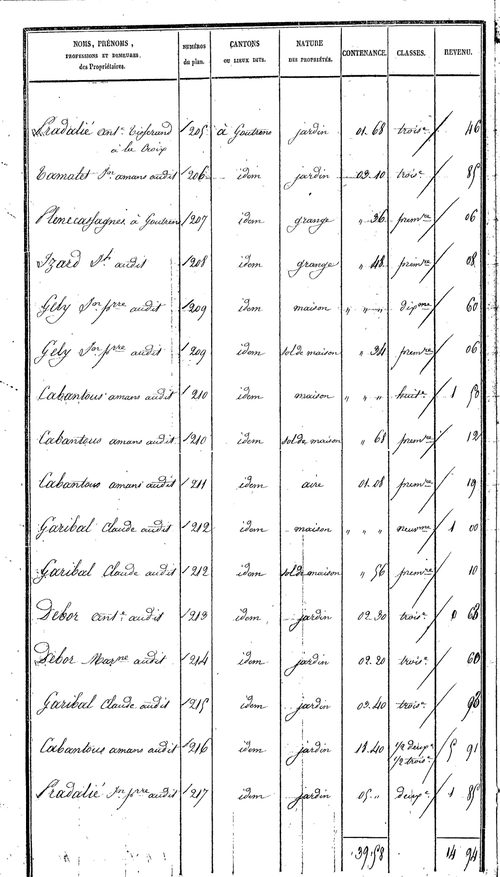 NOMS, PRÉNOMS, PROFESSIONS ET DEMEURES, des Propriétaires. NUMÉROS du plan. CANTONS OU LIEUX DITS. NATURE DES PROPRIÉTÉS. CONTENANCE. CLASSES. REVENU.
Pradalié ant.e tisserand 1205 à Goutrens jardin 01.68 trois.e 46
à la Croix
Tamalet Jn amans audit 1206 idem jardin 03.10 trois.e 85
Plenecassagnes à Goutrens 1207 idem grange " 36 premre 06
Izard Jh audit 1208 idem grange " 48 premre 08
Gély Jn prre audit 1209 idem maison " " " dixme 60
Gély Jn prre audit 1209 idem sol de maison " 34 premre 06
Cabantous amans audit 1210 idem maison " " " huite. 1 50
Cabantous amans audit 1210 idem sol de maison " 68 premre 12
Cabantous amans audit 1211 idem aire 01.08 premre 19
Garibal Claude audit 1212 idem maison " " " neuvme 1 00
Garibal Claude audit 1212 idem sol de maison " 56 premre 10
Débor ant.e audit 1213 idem jardin 02.30 trois.e 0 63
Débor Marne audit 1214 idem jardin 02.20 trois.e 60
Garibal Claude audit 1215 idem jardin 03.40 trois.e 93
Cabantous amans audit 1216 idem jardin 18.40 1/2 deux.e 5 91
1/2 trois.e
Pradalié Jn prre audit 1217 idem jardin 05. " deux.e 1 85
39.58 14 94